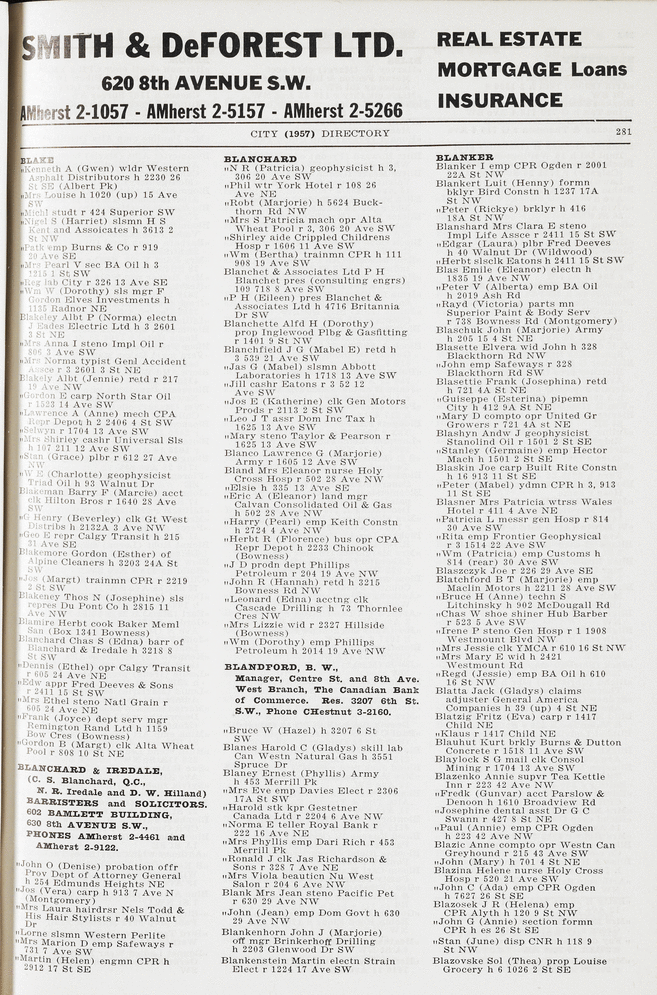 SMITH & DeFOREST LTD.
620 8th AVENUE S.W.
AMherst 2-1057 - AMherst 2-5157 - AMherst 2-5266
REAL ESTATE
MORTGAGE Loans
INSURANCE
CITY (1957) DIRECTORY 281
BLAKE
"Kenneth A (Gwen) wldr Western
Asphalt Distributors h 2230 26
St SE (Albert Pk)
"Mrs Louise h 1020 (up) 15 Ave
SW
"Michl studt r 424 Superior SW
"Nigel S (Harriet) slsmn H S
Kent and Assoicates h 3613 2
St NW
"Path emp Burns & Co r 919
20 Ave SE
"Mrs Pearl V sec BA Oil h 3
1215 1 St SW
"Reg lab City r 326 13 Ave SE
"Wm W (Dorothy) sls mgr F
Gordon Elves Investments h
1135 Radnor NE
Blakeley Albt P (Norma) electn
J Eades Electric Ltd h 3 2601
3 St NE
"Mrs Anna I steno Impl Oil r
806 3 Ave SW
"Mrs Norma typist Genl Accident
Assce r 3 2601 3 St NE
Blakely Albt (Jennie) retd r 217
19 Ave NW
"Gordon E carp North Star Oil
r 1523 14 Ave SW
"Lawrence A (Anne) mech CPA
Repr Depot h 2 2406 4 St SW
"Selwyn r 1704 13 Ave SW
"Mrs Shirley cashr Universal Sls
h 107 211 12 Ave SW
"Stan (Grace) plbr r 612 27 Ave
NW
"W E (Charlotte) geophysicist
Triad Oil h 93 Walnut Dr
Blakeman Barry F (Marcie) acct
clk Hilton Bros r 1640 28 Ave
SW
"G Henry (Beverley) clk Gt West
Distribs h 2132A 3 Ave NW
"Geo E repr Calgy Transit h 215
31 Ave SE
Blakemore Gordon (Esther) of
Alpine Cleaners h 3203 24A St
SW
"Jos (Margt) trainmn CPR r 2219
2 St SW
Blakeney Thos N (Josephine) sls
repres Du Pont Co h 2815 11
Ave NW
Blamire Herbt cook Baker Meml
San (Box 1341 Bowness)
Blanchard Chas S (Edna) barr of
Blanchard & Iredale h 3218 8
St SW
"Dennis (Ethel) opr Calgy Transit
r 605 24 Ave NE
"Edw appr Fred Deeves & Sons
r 2411 15 St SW
"Mrs Ethel steno Natl Grain r
605 24 Ave NE
"Frank (Joyce) dept serv mgr
Remington Rand Ltd h 1159
Bow Cres (Bowness)
"Gordon B (Margt) clk Alta Wheat
Pool r 808 10 St NE
BLANCHARD & IREDALE,
(C. S. Blanchard, Q.C.,
N. R. Iredale and D. W. Hilland)
BARRISTERS and SOLICITORS.
602 BAMLETT BUILDING,
630 8th AVENUE S.W.,
PHONES AMherst 2-4461 and
AMherst 2-9122.
"John O (Denise) probation offr
Prov Dept of Attorney General
h 254 Edmunds Heights NE
"Jos (Vera) carp h 913 7 Ave N
(Montgomery)
"Mrs Laura hairdrsr Nels Todd &
His Hair Stylists r 40 Walnut
Dr
"Lorne slsmn Western Perlite
"Mrs Marion D emp Safeways r
731 7 Ave SW
"Martin (Helen) engmn CPR h
2912 17 St SE
BLANCHARD
"N R (Patricia) geophysicist h 3,
306 20 Ave SW
"Phil wtr York Hotel r 108 26
Ave NE
"Robt (Marjorie) h 5624 Buck-
thorn Rd NW
"Mrs S Patricia mach opr Alta
Wheat Pool r 3, 306 20 Ave SW
"Shirley aide Crippled Childrens
Hosp r 1606 11 Ave SW
"Wm (Bertha) trainmn CPR h 111
908 19 Ave SW
Blanchet & Associates Ltd P H
Blanchet pres (consulting engrs)
109 718 8 Ave SW
"P H (Eileen) pres Blanchet &
Associates Ltd h 4716 Britannia
Dr SW
Blanchette Alfd H (Dorothy)
prop Inglewood Plbg & Gasfitting
r 1401 9 St NW
Blanchfield J G (Mabel E) retd h
3 539 21 Ave SW
"Jas G (Mabel) slsmn Abbott
Laboratories h 1718 13 Ave SW
"Jill cashr Eatons r 3 52 12
Ave SW
"Jos E (Katherine) clk Gen Motors
Prods r 2113 2 St SW
"Leo J T assr Dom Inc Tax h
1625 13 Ave SW
"Mary steno Taylor & Pearson r
1625 13 Ave SW
Blanco Lawrence G (Marjorie)
Army r 1605 12 Ave SW
Bland Mrs Eleanor nurse Holy
Cross Hosp r 502 28 Ave NW
"Elsie h 335 13 Ave SE
"Eric A (Eleanor) land mgr
Calvan Consolidated Oil & Gas
h 502 28 Ave NW
"Harry (Pearl) emp Keith Constn
h 2724 4 Ave NW
"Herbt R (Florence) bus opr CPA
Repr Depot h 2233 Chinook
(Bowness)
"J D prodn dept Phillips
Petroleum r 204 19 Ave NW
"John R (Hannah) retd h 3215
Bowness Rd NW
"Leonard (Edna) acctng clk
Cascade Drilling h 73 Thornlee
Cres NW
"Mrs Lizzie wid r 2327 Hillside
(Bowness)
"Wm (Dorothy) emp Phillips
Petroleum h 2014 19 Ave NW
BLANDFORD, B. W.,
Manager, Centre St. and 8th Ave.
West Branch, The Canadian Bank
of Commerce. Res. 3207 6th St.
S.W., Phone CHestnut 3-2160.
"Bruce W (Hazel) h 3207 6 St
SW
Blanes Harold C (Gladys) skill lab
Can Westn Natural Gas h 3551
Spruce Dr
Blaney Ernest (Phyllis) Army
h 453 Merrill Pk
"Mrs Eve emp Davies Elect r 2306
17A St SW
"Harold stk kpr Gestetner
Canada Ltd r 2204 6 Ave NW
"Norma E teller Royal Bank r
222 16 Ave NE
"Mrs Phyllis emp Dari Rich r 453
Merrill Pk
"Ronald J clk Jas Richardson &
Sons r 328 7 Ave NE
"Mrs Viola beauticn Nu West
Salon r 204 6 Ave NW
Blank Mrs Jean steno Pacific Pet
r 630 29 Ave NW
"John (Jean) emp Dom Govt h 630
29 Ave NW
Blankenhorn John J (Marjorie)
off mgr Brinkerhoff Drilling
h 2203 Glenwood Dr SW
Blankenstein Martin electn Strain
Elect r 1224 17 Ave SW
BLANKER
Blanker I emp CPR Ogden r 2001
22A St NW
Blankert Luit (Henny) formn
bklyr Bird Constn h 1237 17A
St NW
"Peter (Rickye) brklyr h 416
18A St NW
Blanshard Mrs Clara E steno
Impl Life Assce r 2411 15 St SW
"Edgar (Laura) plbr Fred Deeves
h 40 Walnut Dr (Wildwood)
"Herbt slsclk Eatons h 2411 15 St SW
Blas Emile (Eleanor) electn h
1835 19 Ave NW
"Peter V (Alberta) emp BA Oil
h 2019 Ash Rd
"Rayd (Victoria) parts mn
Superior Paint & Body Serv
r 738 Bowness Rd (Montgomery)
Blaschuk John (Marjorie) Army
h 205 15 4 St NE
Blasette Elvera wid John h 328
Blackthorn Rd NW
"John emp Safeways r 328
Blackthorn Rd SW
Blasettie Frank (Josephina) retd
h 721 4A St NE
"Guiseppe (Esterina) pipemn
City h 412 9A St NE
"Mary D compto opr United Gr
Growers r 721 4A st NE
Blashyn Andw J geophysicist
Stanolind Oil r 1501 2 St SE
"Stanley (Germaine) emp Hector
Mach h 1501 2 St SE
Blaskin Joe carp Built Rite Constn
h 16 913 11 St SE
"Peter (Mabel) ydmn CPR h 3, 913
11 St SE
Blasner Mrs Patricia wtrss Wales
Hotel r 411 4 Ave NE
"Patricia L messr gen Hosp r 814
30 Ave SW
"Rita emp Frontier Geophysical
r 3 1514 22 Ave SW
"Wm (Patricia) emp Customs h
814 (rear) 30 Ave SW
Blaszczyk Joe r 226 29 Ave SE
Blatchford B T (Marjorie) emp
Maclin Motors h 2211 28 Ave SW
"Bruce H (Anne) techn S
Litchinsky h 902 McDougall Rd
"Chas W shoe shiner Hub Barber
r 523 5 Ave SW
"Irene P steno Gen Hosp r 1 1908
Westmount Blvd NW
"Mrs Jessie clk YMCA r 610 16 St NW
"Mrs Mary E wid h 2421
Westmount Rd
"Regd (Jessie) emp BA Oil h 610
16 St NW
Blatta Jack (Gladys) claims
adjuster General America
Companies h 39 (up) 4 St NE
Blatzig Fritz (Eva) carp r 1417
Child NE
"Klaus r 1417 Child NE
Blauhut Kurt brkly Burns & Dutton
Concrete r 1518 11 Ave SW
Blaylock S G mail clk Consol
Mining r 1704 13 Ave SW
Blazenko Annie supvr Tea Kettle
Inn r 223 42 Ave NW
"Fredk (Gunvar) acct Parslow &
Denoon h 1610 Broadview Rd
"Josephine dental asst Dr G C
Swann r 427 8 St NE
"Paul (Annie) emp CPR Ogden
h 223 42 Ave NW
Blazic Anne compto opr Westn Can
Greyhound r 215 43 Ave SW
"John (Mary) h 701 4 St NE
Blazina Helene nurse Holy Cross
Hosp r 520 21 Ave SW
"John C (Ada) emp CPR Ogden
h 7627 26 St SE
Blazosek J R (Helena) emp
CPR Alyth h 120 9 St NW
"John G (Annie) section formn
CPR h es 26 St SE
"Stan (June) disp CNR h 118 9
St NW
Blazovske Sol (Thea) prop Louise
Grocery h 6 1026 2 St SE